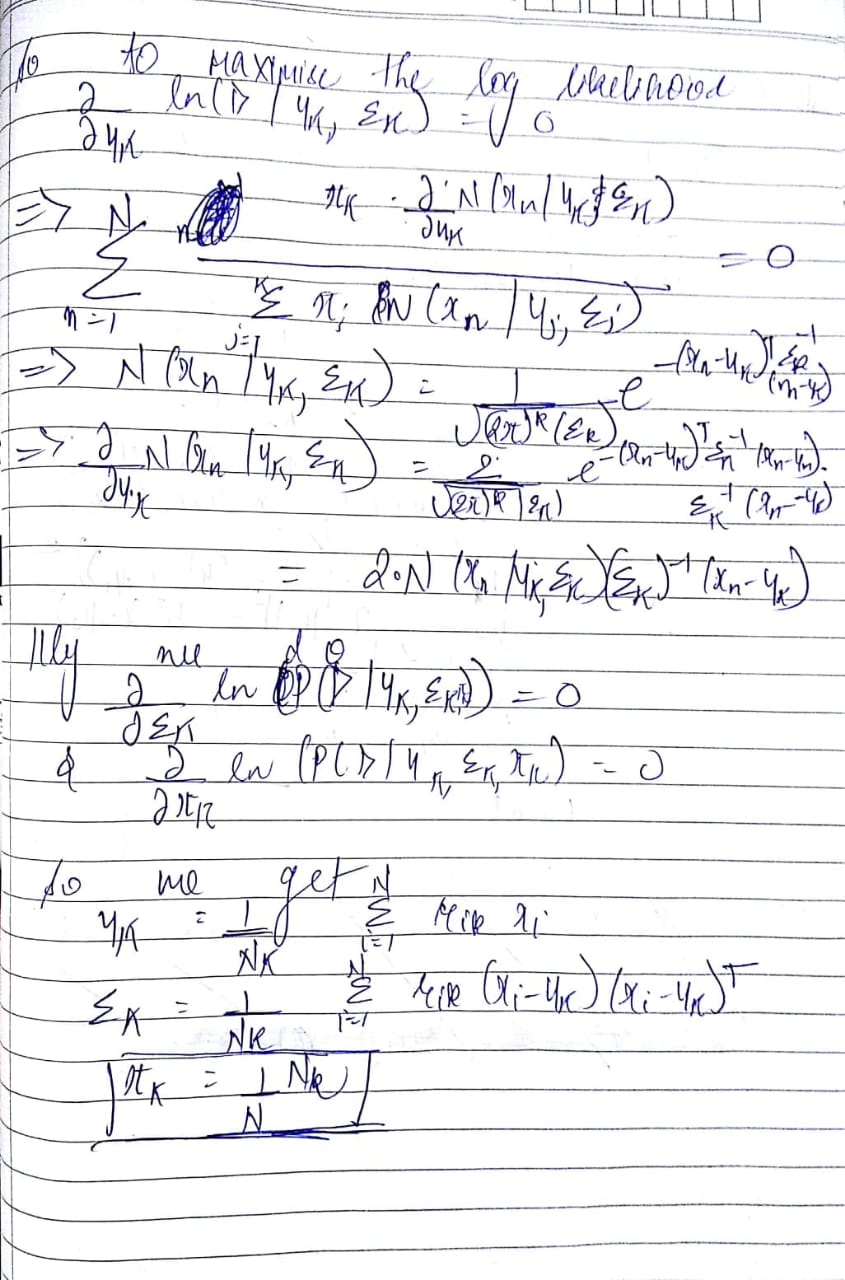 So to maximise the log likelihood
∂/∂μK ln(D | μK, ΣK) = 0
=> N Σ n=1 πK · ∂/∂μK N(xn | μK, ΣK) / K Σ j=1 πj N(xn | μj, Σj) = 0
=> N(xn | μK, ΣK) = 1/√(2π)^k (Σk) e^-(xn-μk)^T Σk^-1 (xn-μk)
=> ∂/∂μK N(xn | μK, ΣK) = 2/√(2π)^k |Σk) e^-(xn-μk)^T Σk^-1 (xn-μk) · ΣK^-1 (xn-μk)
= 2·N(xn | μK, ΣK)(ΣK)^-1 (xn-μK)
|||ly we do
∂/∂ΣK ln (P(D | μK, ΣK)) = 0
& ∂/∂πk ln (P(D | μk, Σk, πk) = 0
So we get
μK = 1/NK N Σ i=1 rik xi
ΣK = 1/Nk N Σ i=1 rik (xi-μk) (xi-μk)^T
πK = 1/N Nk